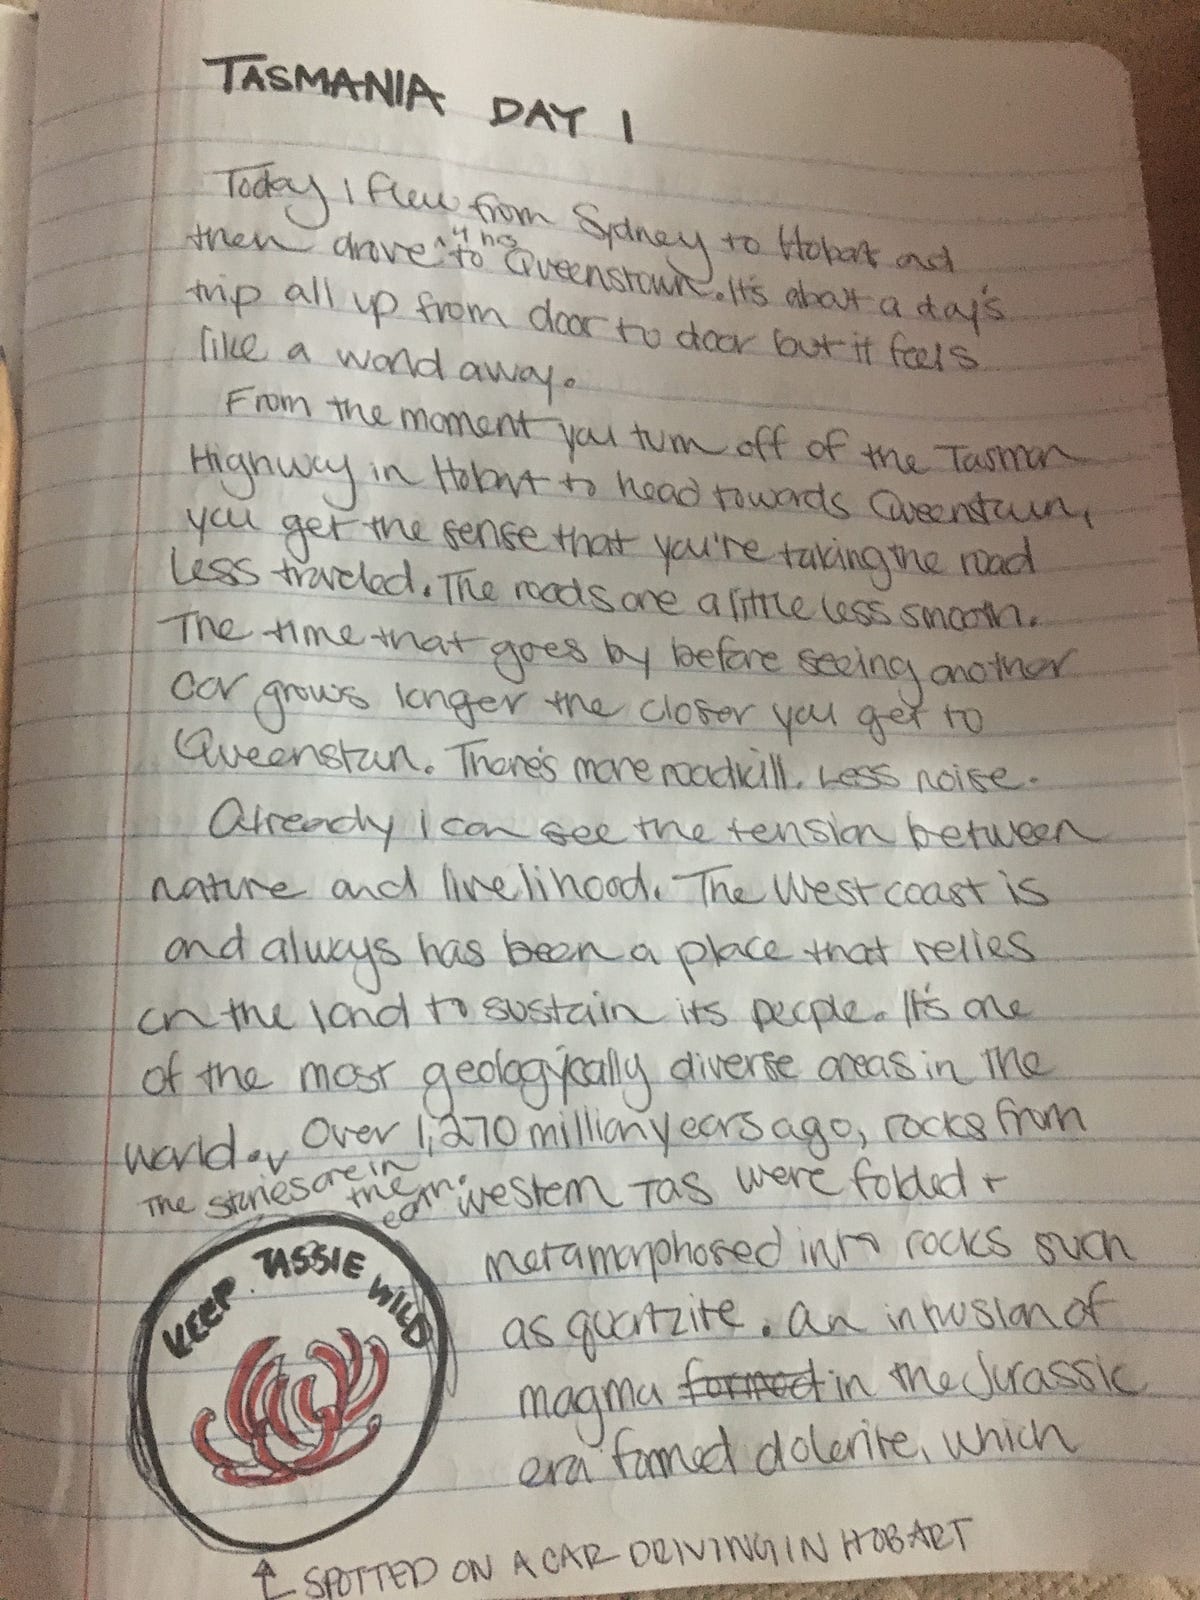 TASMANIA DAY 1
Today I flew from Sydney to Hobart and
then drove ^ ~4 hrs to Queenstown. It's about a day's
trip all up from door to door but it feels
like a world away.
From the moment you turn off of the Tasman
Highway in Hobart to head towards Queenstown,
you get the sense that you're taking the road
less traveled. The roads are a little less smooth.
The time that goes by before seeing another
car grows longer the closer you get to
Queenstown. There's more roadkill. Less noise.
Already I can see the tension between
nature and livelihood. The West coast is
and always has been a place that relies
on the land to sustain its people. It's one
of the most geologically diverse areas in the
world. Over 1,270 million years ago, rocks from
The stories are in
the
earth.
western TAS were folded +
metamorphosed into rocks such
as quartzite. An intrusion of
magma formed in the Jurassic
era formed dolerite, which
KEEP TASSIE WILD
SPOTTED ON A CAR DRIVING IN HOBART